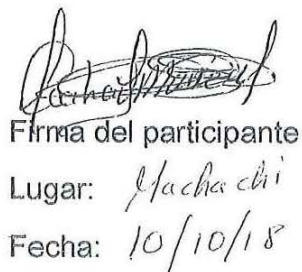 Firma del participante
Lugar: Machachi
Fecha: 10/10/18